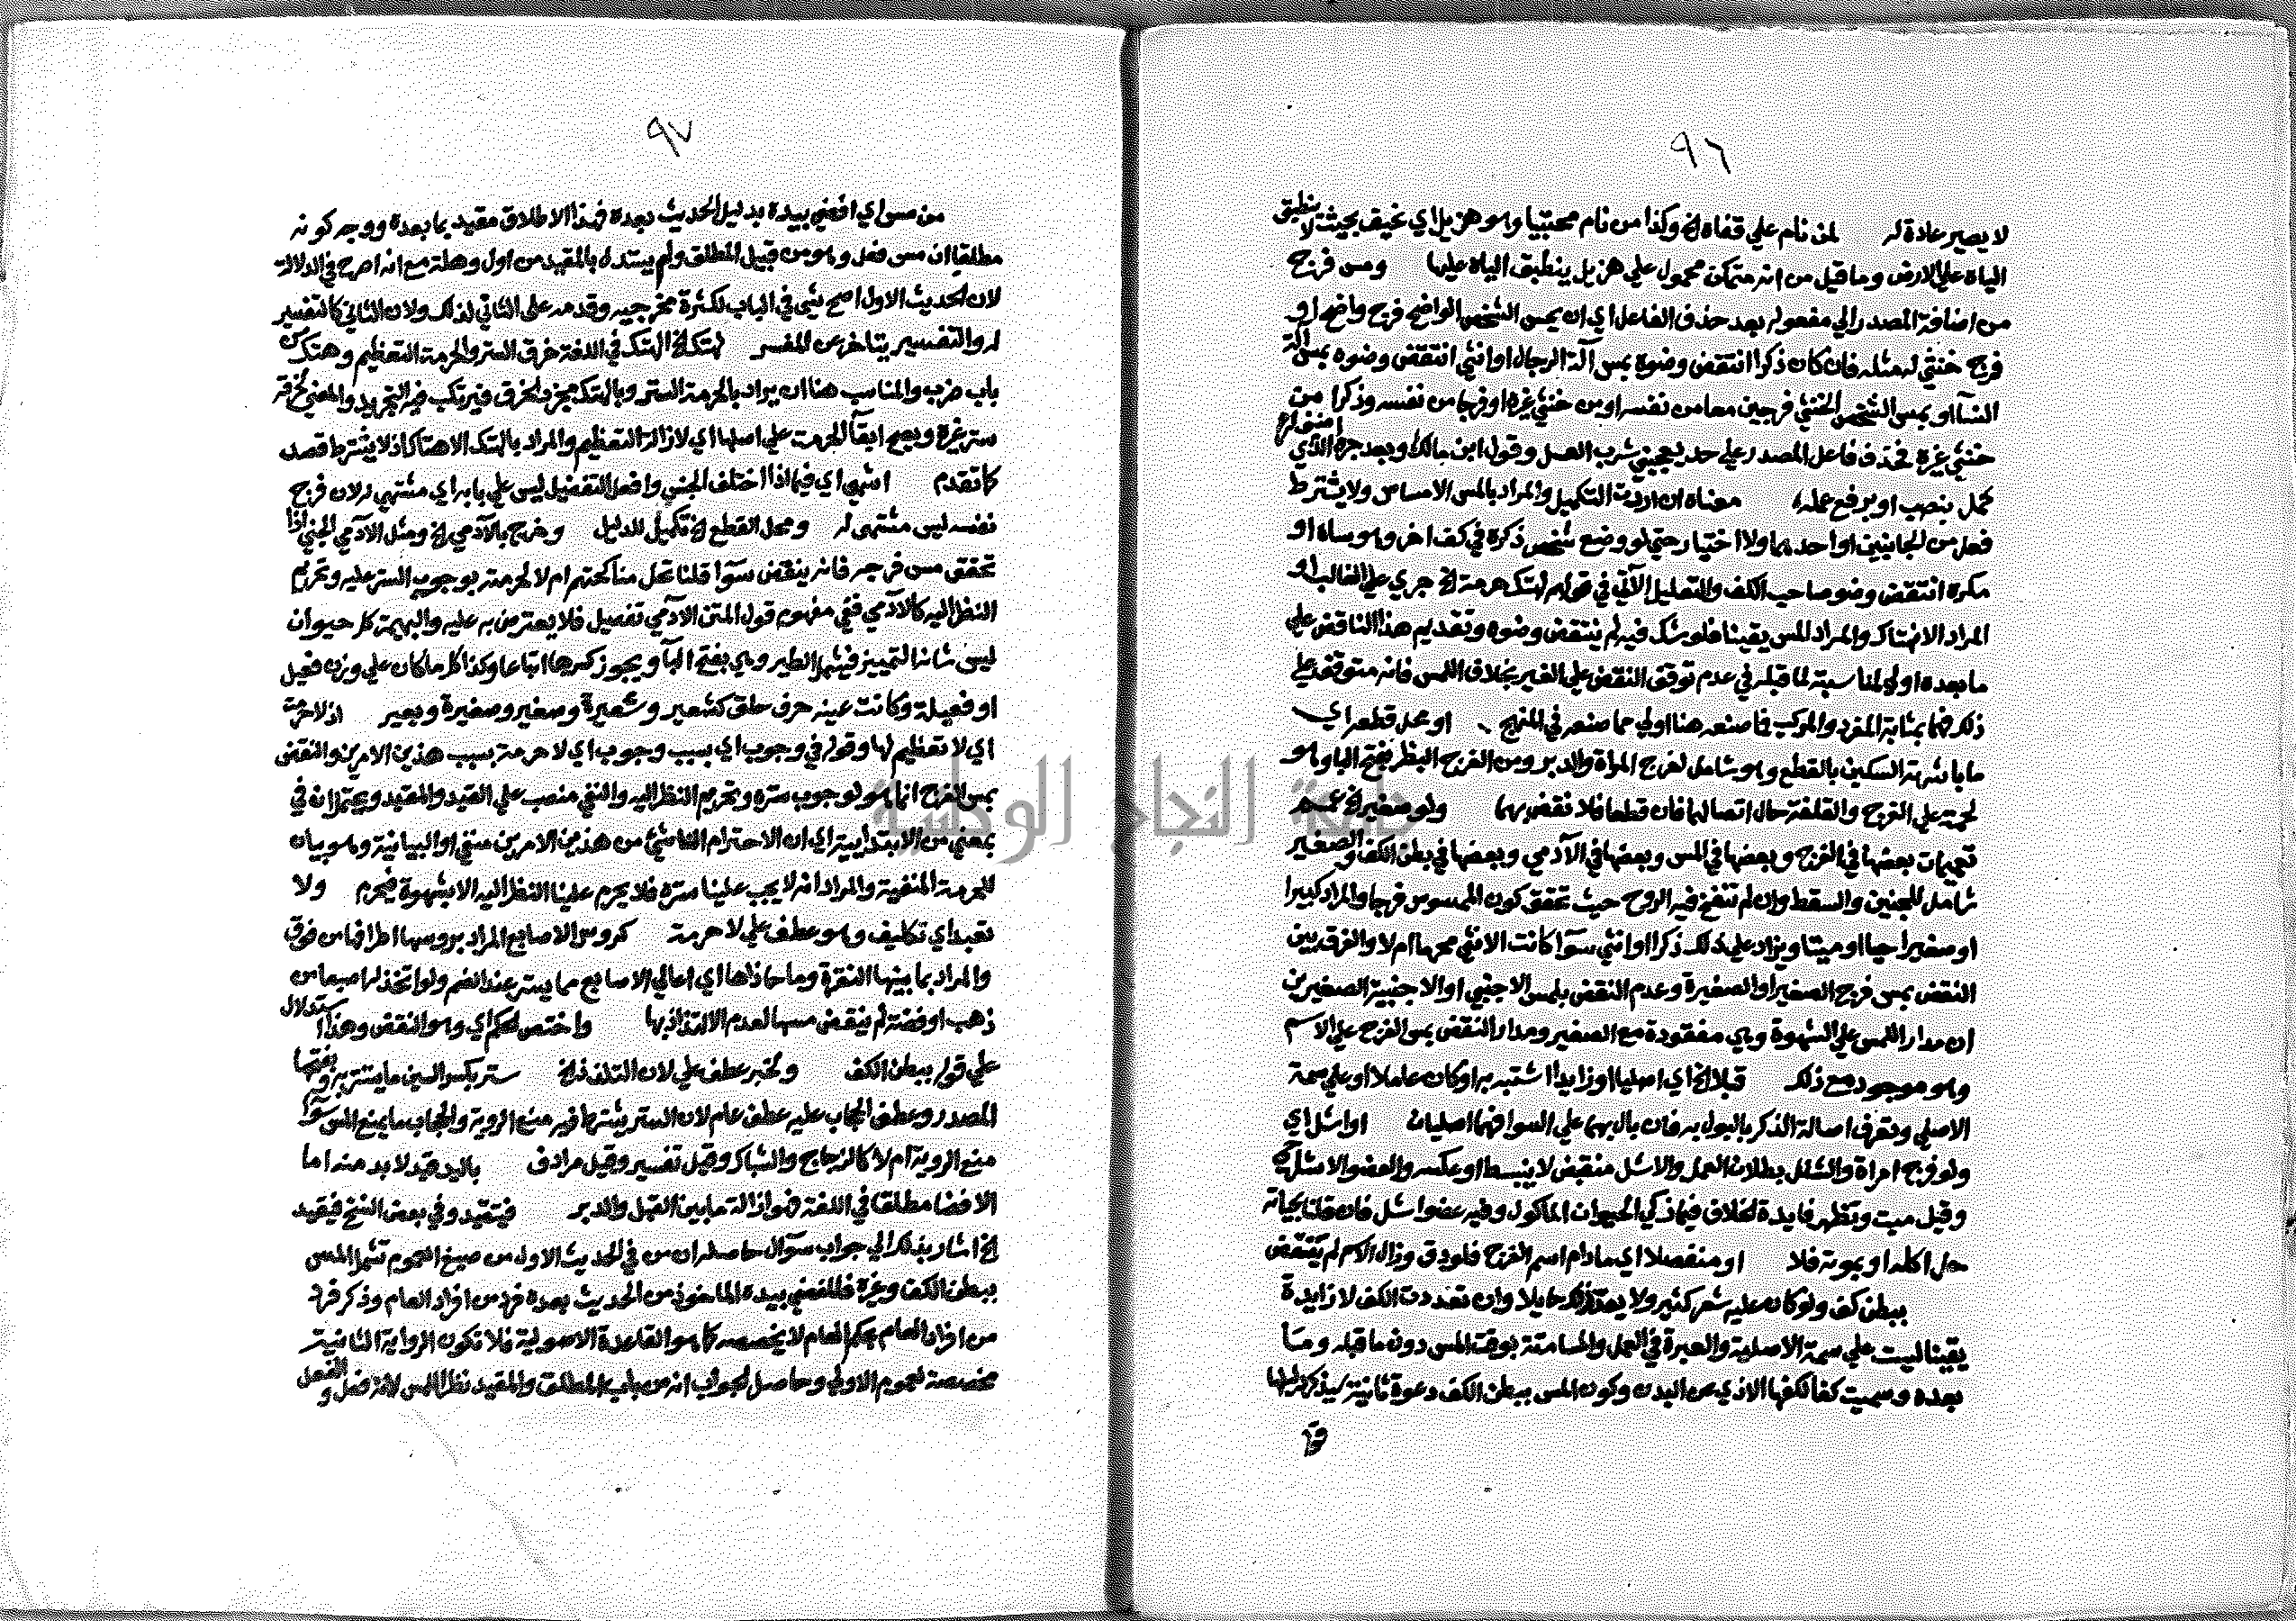 ٩٦
لا يصير عادة له لمن نام علي قفاه الخ وكذا من نام محتبيا وهو هزيل اي نحيف بحيث لا ينطبق
الياه علي الارض وما قيل من انه متمكن محمول علي هزيل ينطبق الياه عليها ومس فرج
من اضافة المصدر الي مفعوله بعد حذف الفاعل اي ان يمس الشخص الواضح فرج واضح او
فرج خنثي له مثله فان كان ذكرا انتقض وضوه بمس آلة الرجال او انثي انتقض وضوه بمس آلة
النسآ او يمس الشخص الخنثي فرجين معا من نفسه او من خنثي غيره او فرجا من نفسه وذكرا من
خنثي غيره فحذف فاعل المصدر علي حد يعجبني شرب العسل وقول ابن مالك وبعد جره الذي اضيف له
كمل بنصب او برفع عمله معناه ان اردت التكميل والمراد بالمس الامساس ولا يشترط
فعل من الجانبين او احدهما ولا اختيار حتي لو وضع شخص ذكره في كف اخر وهو ساه او
مكره انتقض وضو صاحب الكف والتعليل الآتي في قوله لهتك حرمة الخ جري علي الغالب او
المراد الانهتاك والمراد المس يقينا فلو شك فيه لم ينتقض وضوه وتقديم هذا الناقض علي
ما بعده اولي لمناسبته لما قبله في عدم توقف النقض علي الغير بخلاف اللمس فانه متوقف علي
ذلك فهما بمثابة المفرد والمركب فما صنعه هنا اولي مما صنعه في المنهج او محل قطعه اي
ما باشرته السكين بالقطع وهو شامل لفرج المراة والدبر ومن الفرج البظر بفتح البا وهو
لحمة علي الفرج والقلفة حال اتصالهما فان قطعا فلا نقض بهما ولو صغير الخ
تعميمات بعضها في الفرج وبعضها في المس وبعضها في الآدمي وبعضها في بطن الكف والصغير
شامل للجنين والسقط وان لم تنفخ فيه الروح حيث تحقق كون الممسوس فرجا والمراد كبيرا
او صغيرا حيا او ميتا ويزاد علي ذلك ذكرا او انثي سوآ كانت الانثي محرما ام لا والفرق بين
النقض بمس فرج الصغير او الصغيرة وعدم النقض بلمس الاجنبي او الاجنبية الصغيرين
ان مدار اللمس علي الشهوة وهي مفقودة مع الصغير ومدار النقض بمس الفرج علي الاسم
وهو موجود مع ذلك قبلا الخ اي اصليا او زايدا اشتبه به او كان عاملا او علي سمت
الاصلي وتعرف اصالة الذكر بالبول به فان بال بهما علي السوا فهما اصليان او اشل اي
ولو فرج امراة والشلل بطلان العمل والاشل منقبض لا ينبسط او عكسه والعضو الاشل حي
وقيل ميت وتظهر فايدة الخلاف فيما ذكي الحيوان الماكول وفيه عضو اشل فان قلنا بحياته
حل اكله او بموته فلا او منفصلا اي ما دام اسم الفرج فلو دق وزال الاسم لم ينتقض
ببطن كف ولو كان عليه شعر كثير ولا يعد ذلك حايلا وان تعددت الكف لا زايدة
يقينا ليست علي سمت الاصلية والعبرة في العمل والمسامتة بوقت المس دون ما قبله وما
بعده وسميت كفا لكفها الاذي عن البدن وكون المس ببطن الكف دعوة ثانية يذكر لها
٩٧
من مس اي افضي بيده بدليل الحديث بعده فهذا الاطلاق مقيد بما بعده ووجه كونه
مطلقا ان مس فعل وهو من قبيل المطلق ولم يستدل بالمقيد من اول وهلة مع انه اصرح في الدلالة
لان الحديث الاول اصح شي في الباب لكثرة مخرجيه وقدمه علي الثاني لذلك ولان الثاني كالتفسير
له والتفسير يتاخر عن المفسر لهتك الخ الهتك في اللغة خرق الستر والحرمة التعظيم وهتك من
باب ضرب والمناسب هنا ان يراد بالحرمة الستر وبالهتك مجرد الخرق فيرتكب فيه التجريد والمعني لخرقه
ستر غيره ويصح ابقآ الحرمة علي اصلها اي لازالة التعظيم والمراد بالهتك الانهتاك اذ لا يشترط قصد
كما تقدم اشهي اي فيما اذا اختلف الجنس وافعل التفضيل ليس علي بابه اي مشتهي له لان فرج
نفسه ليس مشتهي له ومحل القطع الخ تكميل للدليل وخرج بالآدمي الخ ومثل الآدمي الجني اذا
تحقق مس فرجه فانه ينقض سوآ قلنا تحل مناكحتهم ام لا لحرمته بوجوب الستر عليه وتحريم
النظر اليه كالآدمي ففي مفهوم قول المتن الآدمي تفصيل فلا يعترض به عليه والبهيمة كل حيوان
ليس شانه التمييز فيشمل الطير وهي بفتح البآ ويجوز كسرها اتباعا وكذا كل ما كان علي وزن فعيل
او فعيلة وكانت عينه حرف حلق كشعير وشعيرة وصغير وصغيرة وبعير اذ لا حرمة
اي لا تعظيم لها وقوله في وجوب اي بسبب وجوب اي لا حرمة بسبب هذين الامرين والنقض
بمس الفرج انما هو لوجوب ستره وتحريم النظر اليه والنفي منصب علي القيد والمقيد ويحتمل ان في
بمعني من الابتدايية اي ان الاحترام الناشئ من هذين الامرين منتفي او البيانية وهو بيان
للحرمة المنفية والمراد انه لا يجب علينا ستره فلا يحرم علينا النظر اليه الا بشهوة فيحرم ولا
تعبد اي تكليف وهو عطف علي لا حرمة كروس الاصابع المراد بروسها اطرافها من فوق
والمراد بما بينها النقرة وما حاذاها اي اعالي الاصابع مما يستر عند الضم ولو اتخذ له اصبعا من
ذهب او فضة لم ينقض مسها لعدم الالتذاذ بها واختص الحكم اي وهو النقض وهذا استدلال
علي قوله ببطن الكف ولخبر عطف علي لان التلذذ الخ ستر بكسر السين ما يستتر به وبفتحها
المصدر وعطف الحجاب عليه عطف عام لان الستر يشترط فيه منع الروية والحجاب ما يمنع المس سوآ
منع الروية ام لا كالزجاج والشباك وقيل تفسير وقيل مرادف باليد قيد لا بد منه اما
الافضا مطلقا في اللغة فهو ازالة ما بين القبل والدبر فيتقيد وفي بعض النسخ فيقيد
الخ اشار بذلك الي جواب سوآل حاصله ان من في الحديث الاول من صيغ العموم تشمل المس
ببطن الكف وغيره فالمفضي بيده الماخوذ من الحديث بعده فرد من افراد العام وذكر فرد
من افراد العام بحكم العام لا يخصصه كما هو القاعدة الاصولية فلا تكون الرواية الثانية
مخصصة لعموم الاولي وحاصل الجواب انه من باب المطلق والمقيد نظرا للمس لانه فعل والفعل